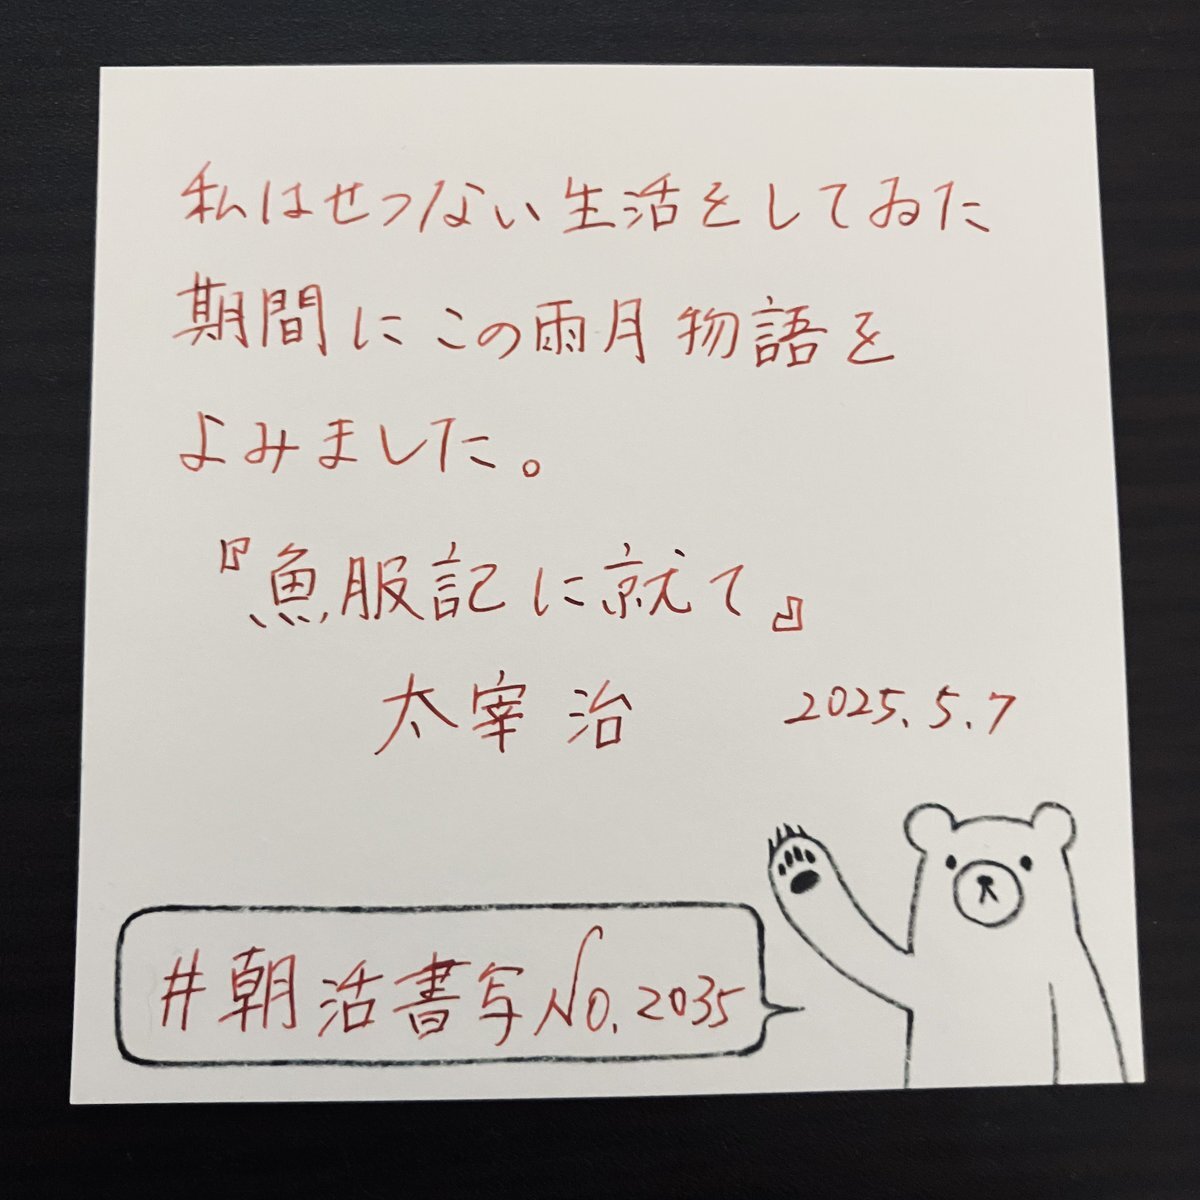 私はせつない生活をしてゐた
期間にこの雨月物語を
よみました。
『魚服記に就て』
太宰治 2025.5.7
#朝活書写No.2035